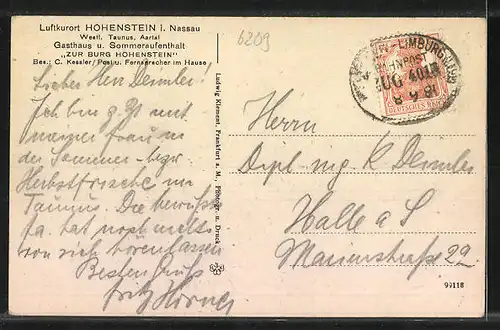 Luftkurort HOHENSTEIN i. Nassau
Westl. Taunus, Aartal
Gasthaus u. Sommeraufenthalt
„ZUR BURG HOHENSTEIN"
Bes.: C. Kessler / Post u. Fernsprecher im Hause
6209
Lieber Herr Demler!
Ich bin z. Zt mit
meiner Frau in
der Sommer- bezw.
Herbstfrische im
Taunus. Die bewußte
Fa. hat noch nichts
von sich hören lassen
Besten Gruß
Fritz Hörner
Ludwig Klement, Frankfurt a. M., Photogr. u. Druck
LIMBURG
BAHNPOST
ZUG 4018
DEUTSCHES REICH
Herrn
Dipl. Ing K Demler
Halle a S
Marienstraße 22
99118